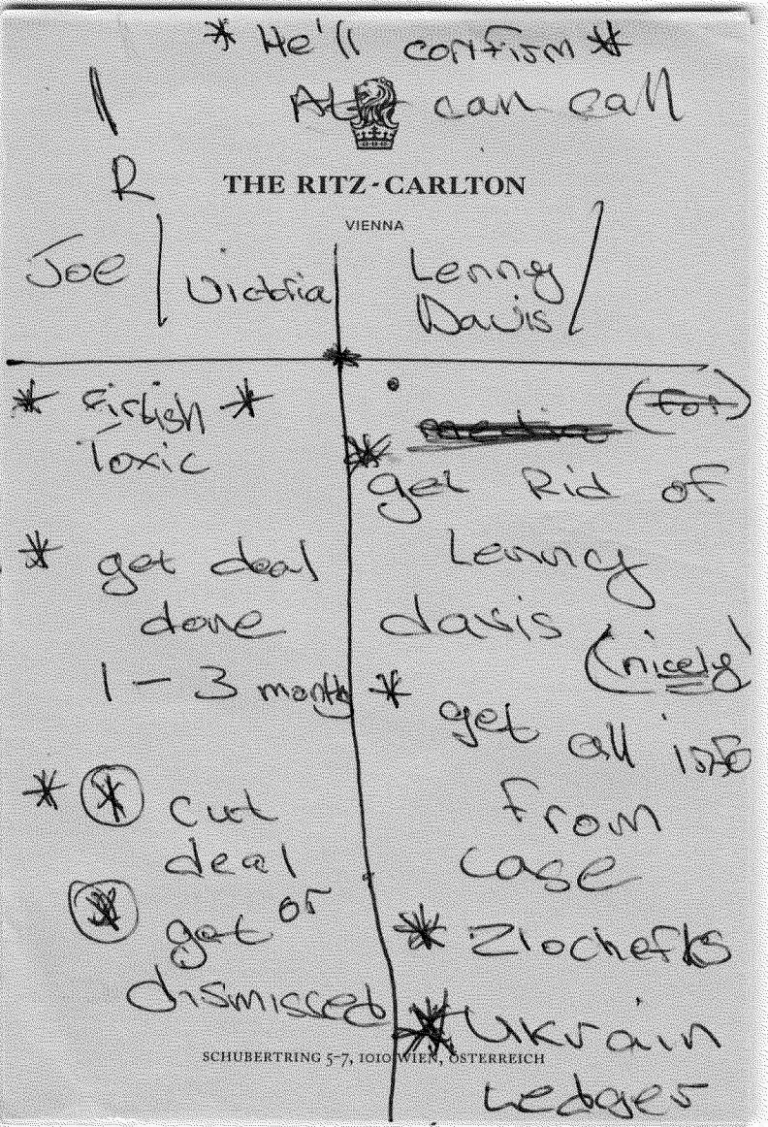 * He'll confirm *
can call
R
THE RITZ-CARLTON
VIENNA
Joe
Victoria
Lenny
Davis
* firtish *
Toxic
* get deal
done
1 - 3 months
* * cut
deal
or
* get
dismissed
(for)
* get Rid of
Lenny
davis
(nicely)
* get all info
from
case
* Zlochefks
* Ukrain
Ledger
SCHUBERTRING 5-7, 1010 WIEN, ÖSTERREICH